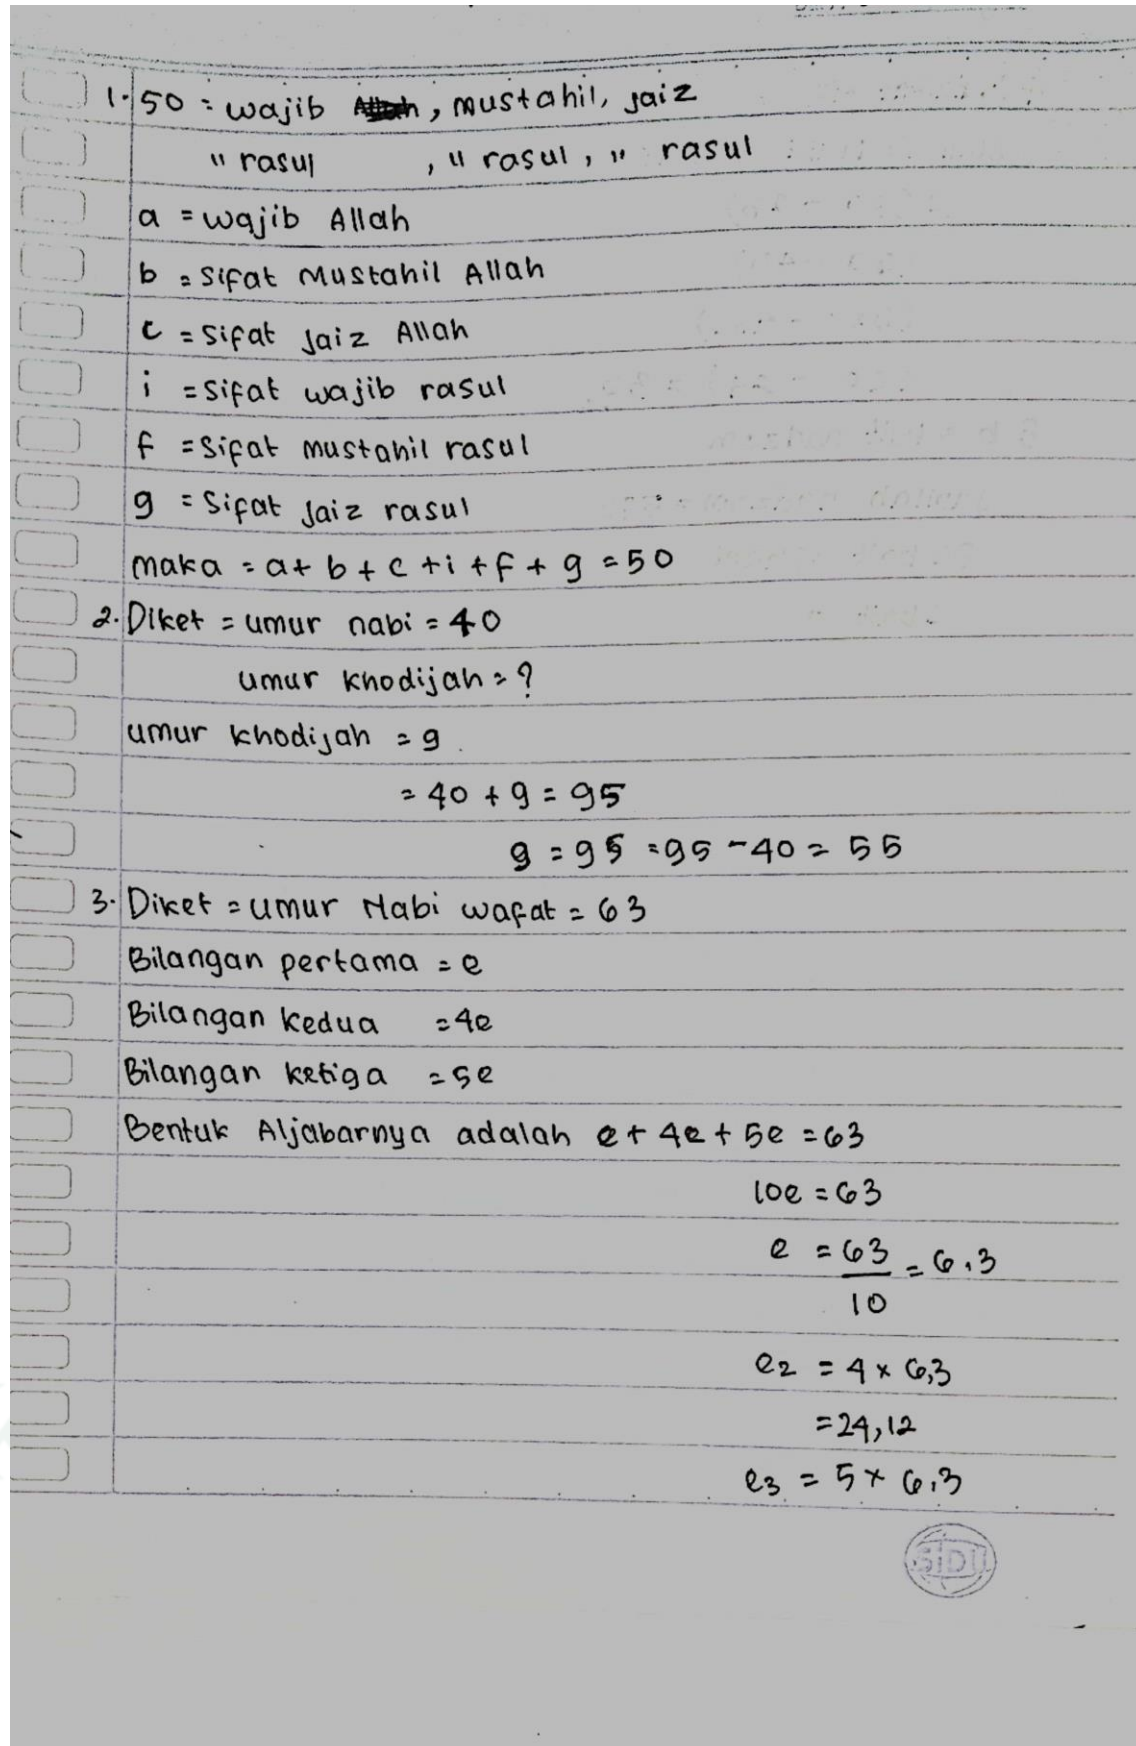 1. 50 = wajib , mustahil, jaiz
" rasul , " rasul, " rasul
a = wajib Allah
b = Sifat Mustahil Allah
c = Sifat Jaiz Allah
i = Sifat wajib rasul
f = Sifat mustahil rasul
g = Sifat Jaiz rasul
maka = a + b + c + i + f + g = 50
2. Diket = umur nabi = 40
umur khodijah = ?
umur khodijah = g
= 40 + g = 95
g = 95 = 95 - 40 = 55
3. Diket = umur Nabi wafat = 63
Bilangan pertama = e
Bilangan kedua = 4e
Bilangan ketiga = 5e
Bentuk Aljabarnya adalah e + 4e + 5e = 63
10e = 63
e = 63 = 6.3
10
e2 = 4 x 6,3
= 24,12
e3 = 5 x 6,3
SIDU